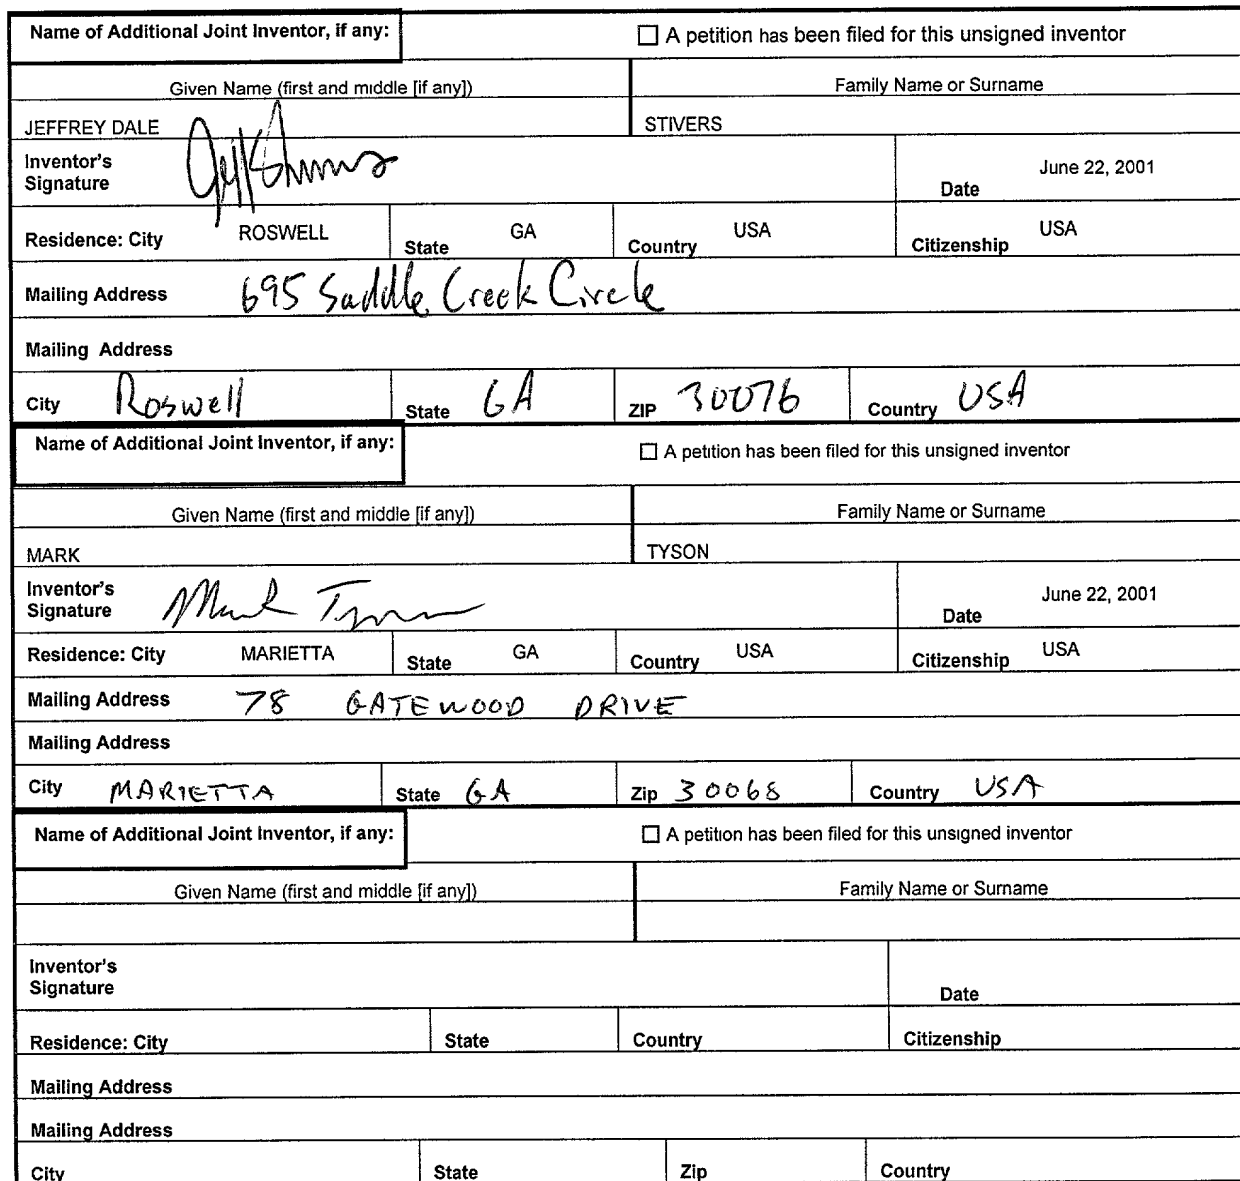 Name of Additional Joint Inventor, if any: ☐ A petition has been filed for this unsigned inventor
Given Name (first and middle [if any]) Family Name or Surname
JEFFREY DALE STIVERS
Inventor's
Signature Date June 22, 2001
Residence: City ROSWELL State GA Country USA Citizenship USA
Mailing Address 695 Saddle Creek Circle
Mailing Address
City Roswell State GA ZIP 30076 Country USA
Name of Additional Joint Inventor, if any: ☐ A petition has been filed for this unsigned inventor
Given Name (first and middle [if any]) Family Name or Surname
MARK TYSON
Inventor's
Signature Mark Tyson Date June 22, 2001
Residence: City MARIETTA State GA Country USA Citizenship USA
Mailing Address 78 GATEWOOD DRIVE
Mailing Address
City MARIETTA State GA Zip 30068 Country USA
Name of Additional Joint Inventor, if any: ☐ A petition has been filed for this unsigned inventor
Given Name (first and middle [if any]) Family Name or Surname
Inventor's
Signature Date
Residence: City State Country Citizenship
Mailing Address
Mailing Address
City State Zip Country